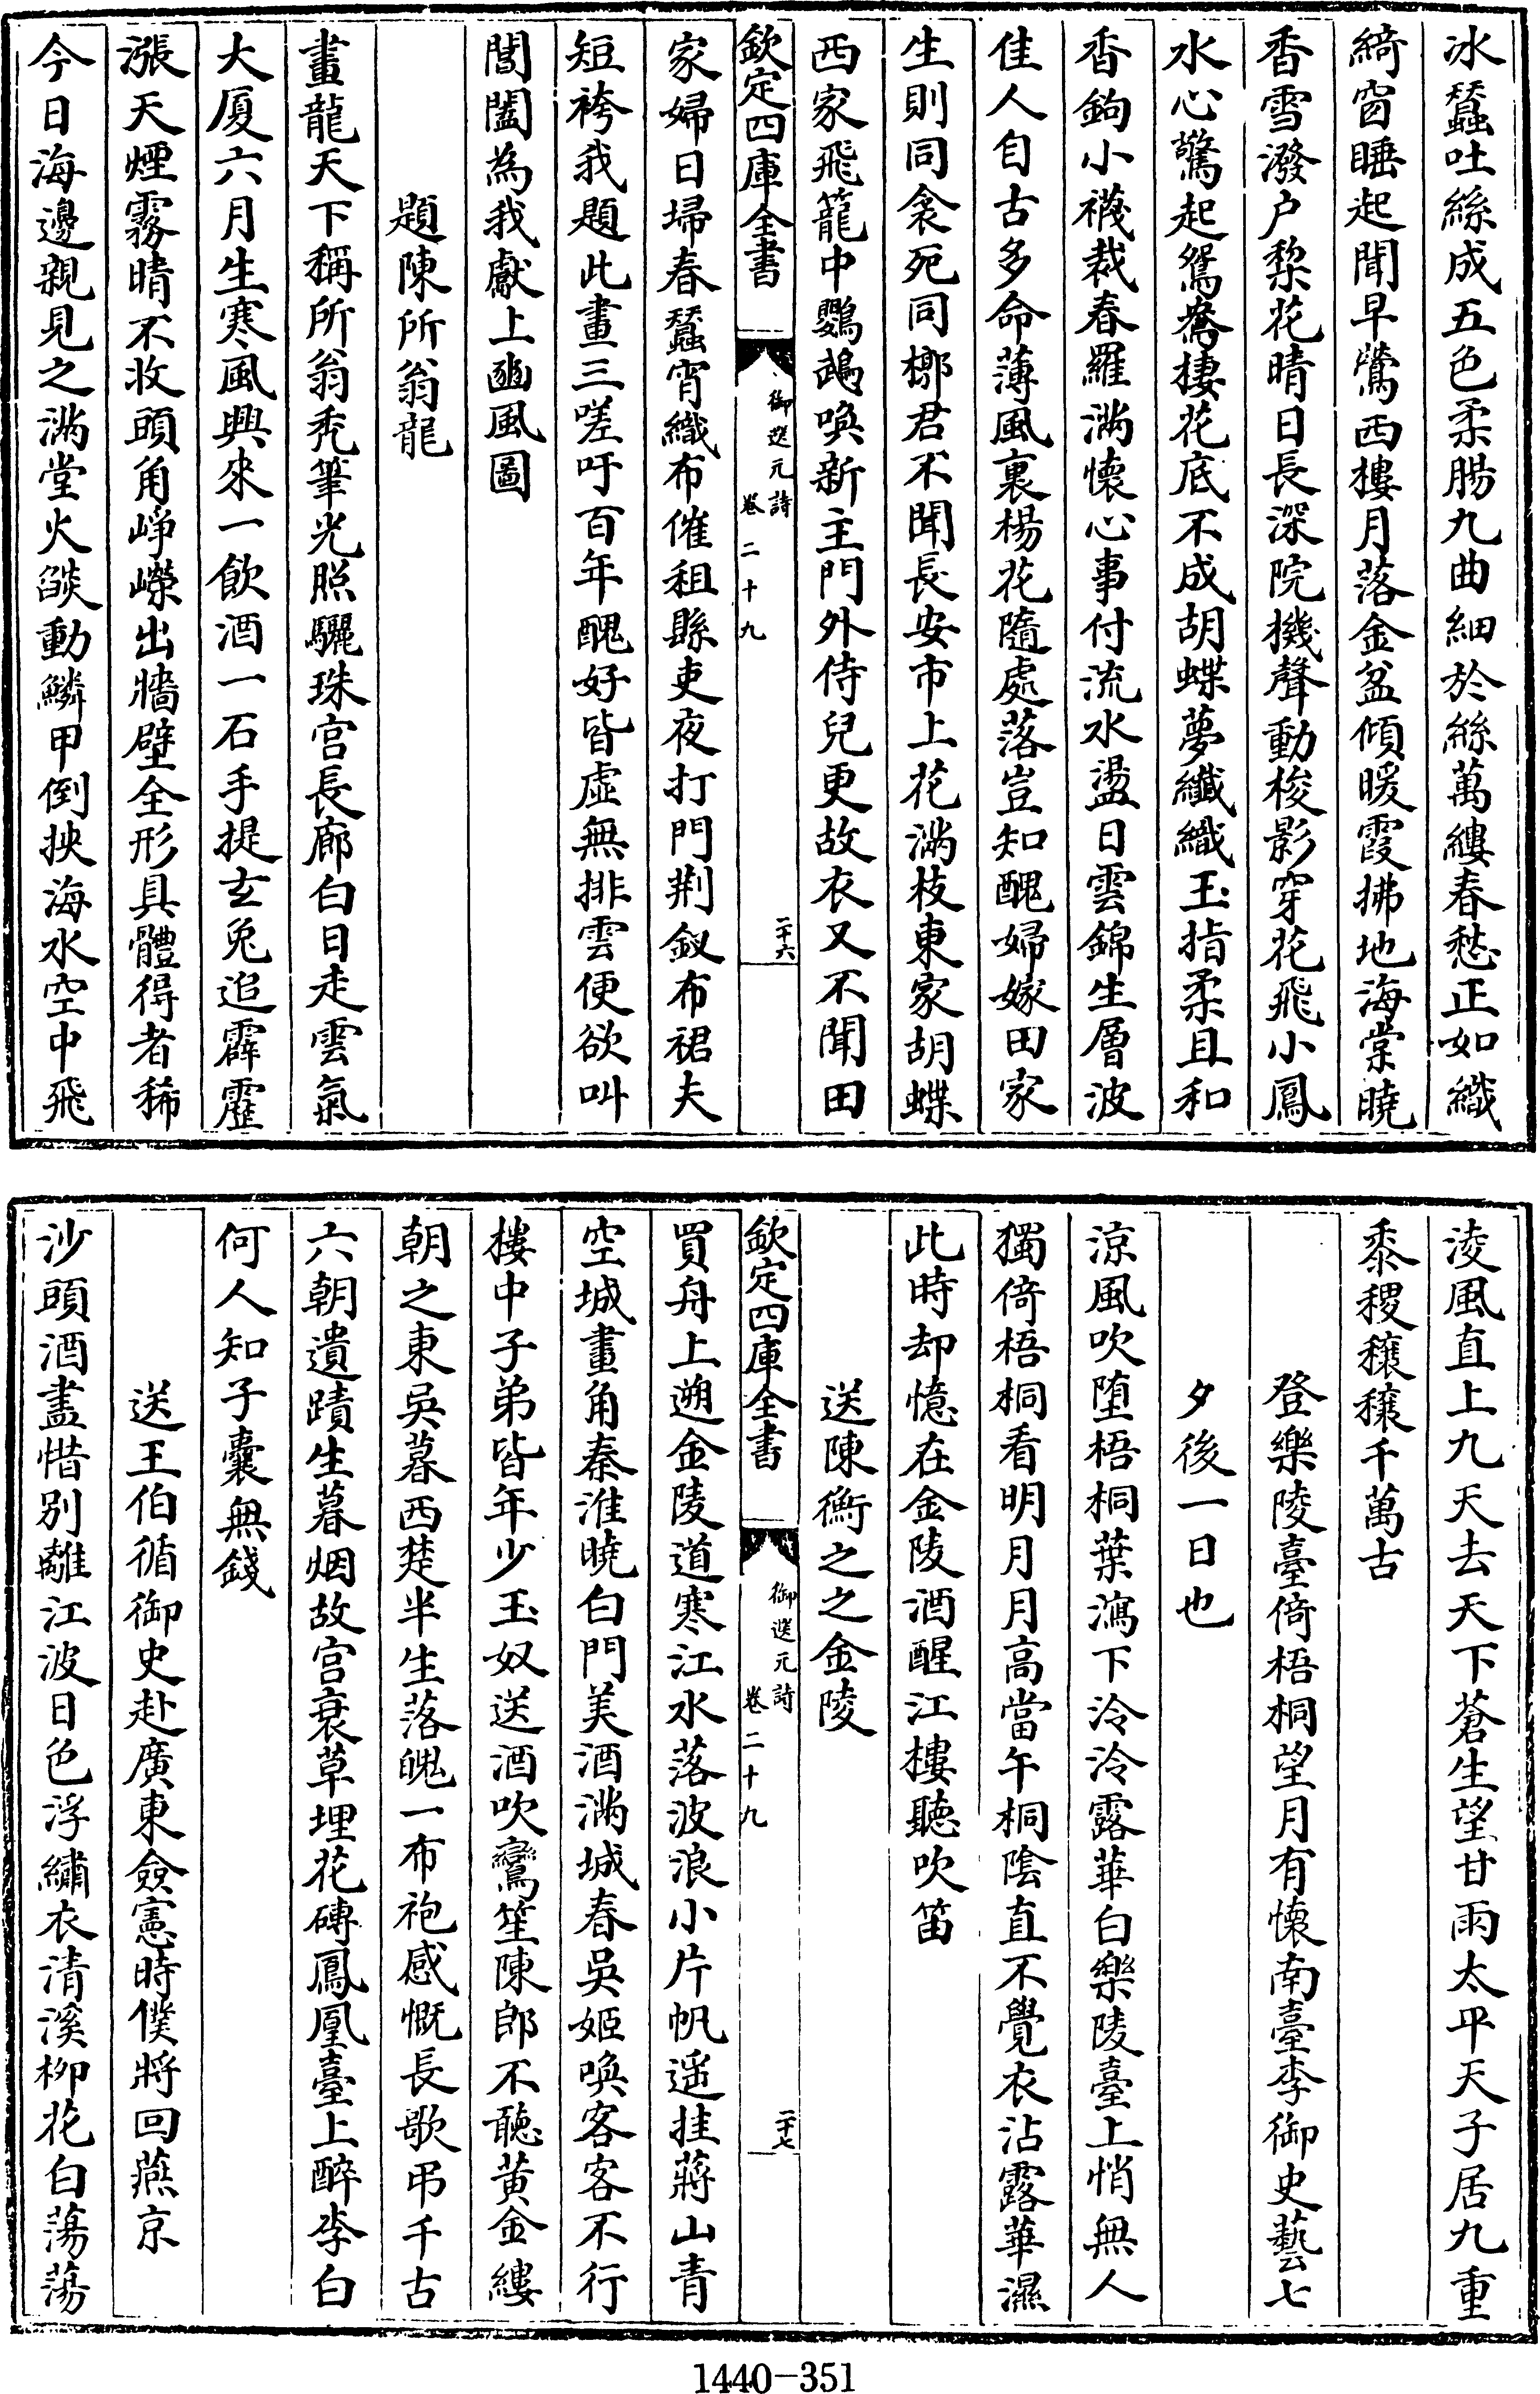 冰蠶吐絲成五色柔腸九曲細於絲萬縷春愁正如織
綺窗睡起聞早鶯西樓月落金盆傾暖霞拂地海棠曉
香雪潑户棃花晴日長深院機聲動梭影穿花飛小鳳
水心驚起鴛鴦棲花底不成胡蝶夢纖纖玉指柔且和
香鉤小襪裁春羅滿懷心事付流水盪日雲錦生層波
佳人自古多命薄風裏楊花隨處落豈知醜婦嫁田家
生則同衾死同槨君不聞長安市上花滿枝東家胡蝶
西家飛籠中鸚鵡喚新主門外侍兒更故衣又不聞田
欽定四庫全書
御選元詩
卷二十九
二十六
家婦日埽春蠶宵織布催租縣吏夜打門荆釵布裙夫
短袴我題此畫三嗟吁百年醜好皆虚無排雲便欲叫
閶闔為我獻上豳風圖
題陳所翁龍
畫龍天下稱所翁秃筆光照驪珠宫長廊白日走雲氣
大厦六月生寒風興來一飲酒一石手提玄兎追霹靂
漲天煙霧晴不收頭角崢嶸出牆壁全形具體得者稀
今日海邊親見之滿堂火燄動鱗甲倒挾海水空中飛
淩風直上九天去天下蒼生望甘雨太平天子居九重
黍稷穰穰千萬古
登樂陵臺倚梧桐望月有懷南臺李御史藝七
夕後一日也
涼風吹堕梧桐葉瀉下泠泠露華白樂陵臺上悄無人
獨倚梧桐看明月月高當午桐陰直不覺衣沾露華濕
此時却憶在金陵酒醒江樓聽吹笛
送陳衡之之金陵
欽定四庫全書
御選元詩
卷二十九
二十七
買舟上遡金陵道寒江水落波浪小片帆遥挂蔣山青
空城畫角秦淮曉白門美酒滿城春吳姬喚客客不行
樓中子弟皆年少玉奴送酒吹鸞笙陳郎不聽黄金縷
朝之東吳暮西楚半生落魄一布袍感慨長歌弔千古
六朝遺蹟生暮烟故宫衰草埋花磚鳳凰臺上醉李白
何人知子囊無錢
送王伯循御史赴廣東僉憲時僕將回燕京
沙頭酒盡惜别離江波日色浮繡衣清溪柳花白蕩蕩
1440-351